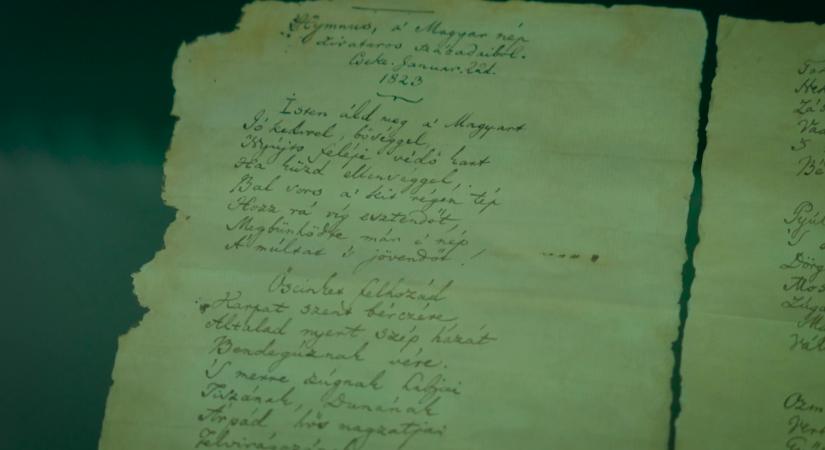 Hymnus, a' Magyar nép
zivataros századaiból.
Cseke. Januar. 22d.
1823
Isten áld meg a' Magyart
Jó kedvvel, bőséggel,
Nyújts feléje védő kart
Ha küzd ellenséggel,
Bal sors a' kit régen tép
Hozz rá víg esztendőt,
Megbűnhődte már e' nép
A' múltat 's jövendőt!
Őseinket felhozád
Kárpát szent bérczére
Általad nyert szép hazát
Bendegúznak vére.
'S merre zúgnak habjai
Tiszának, Dunának
Árpád hős magzatjai
Felvirágozának